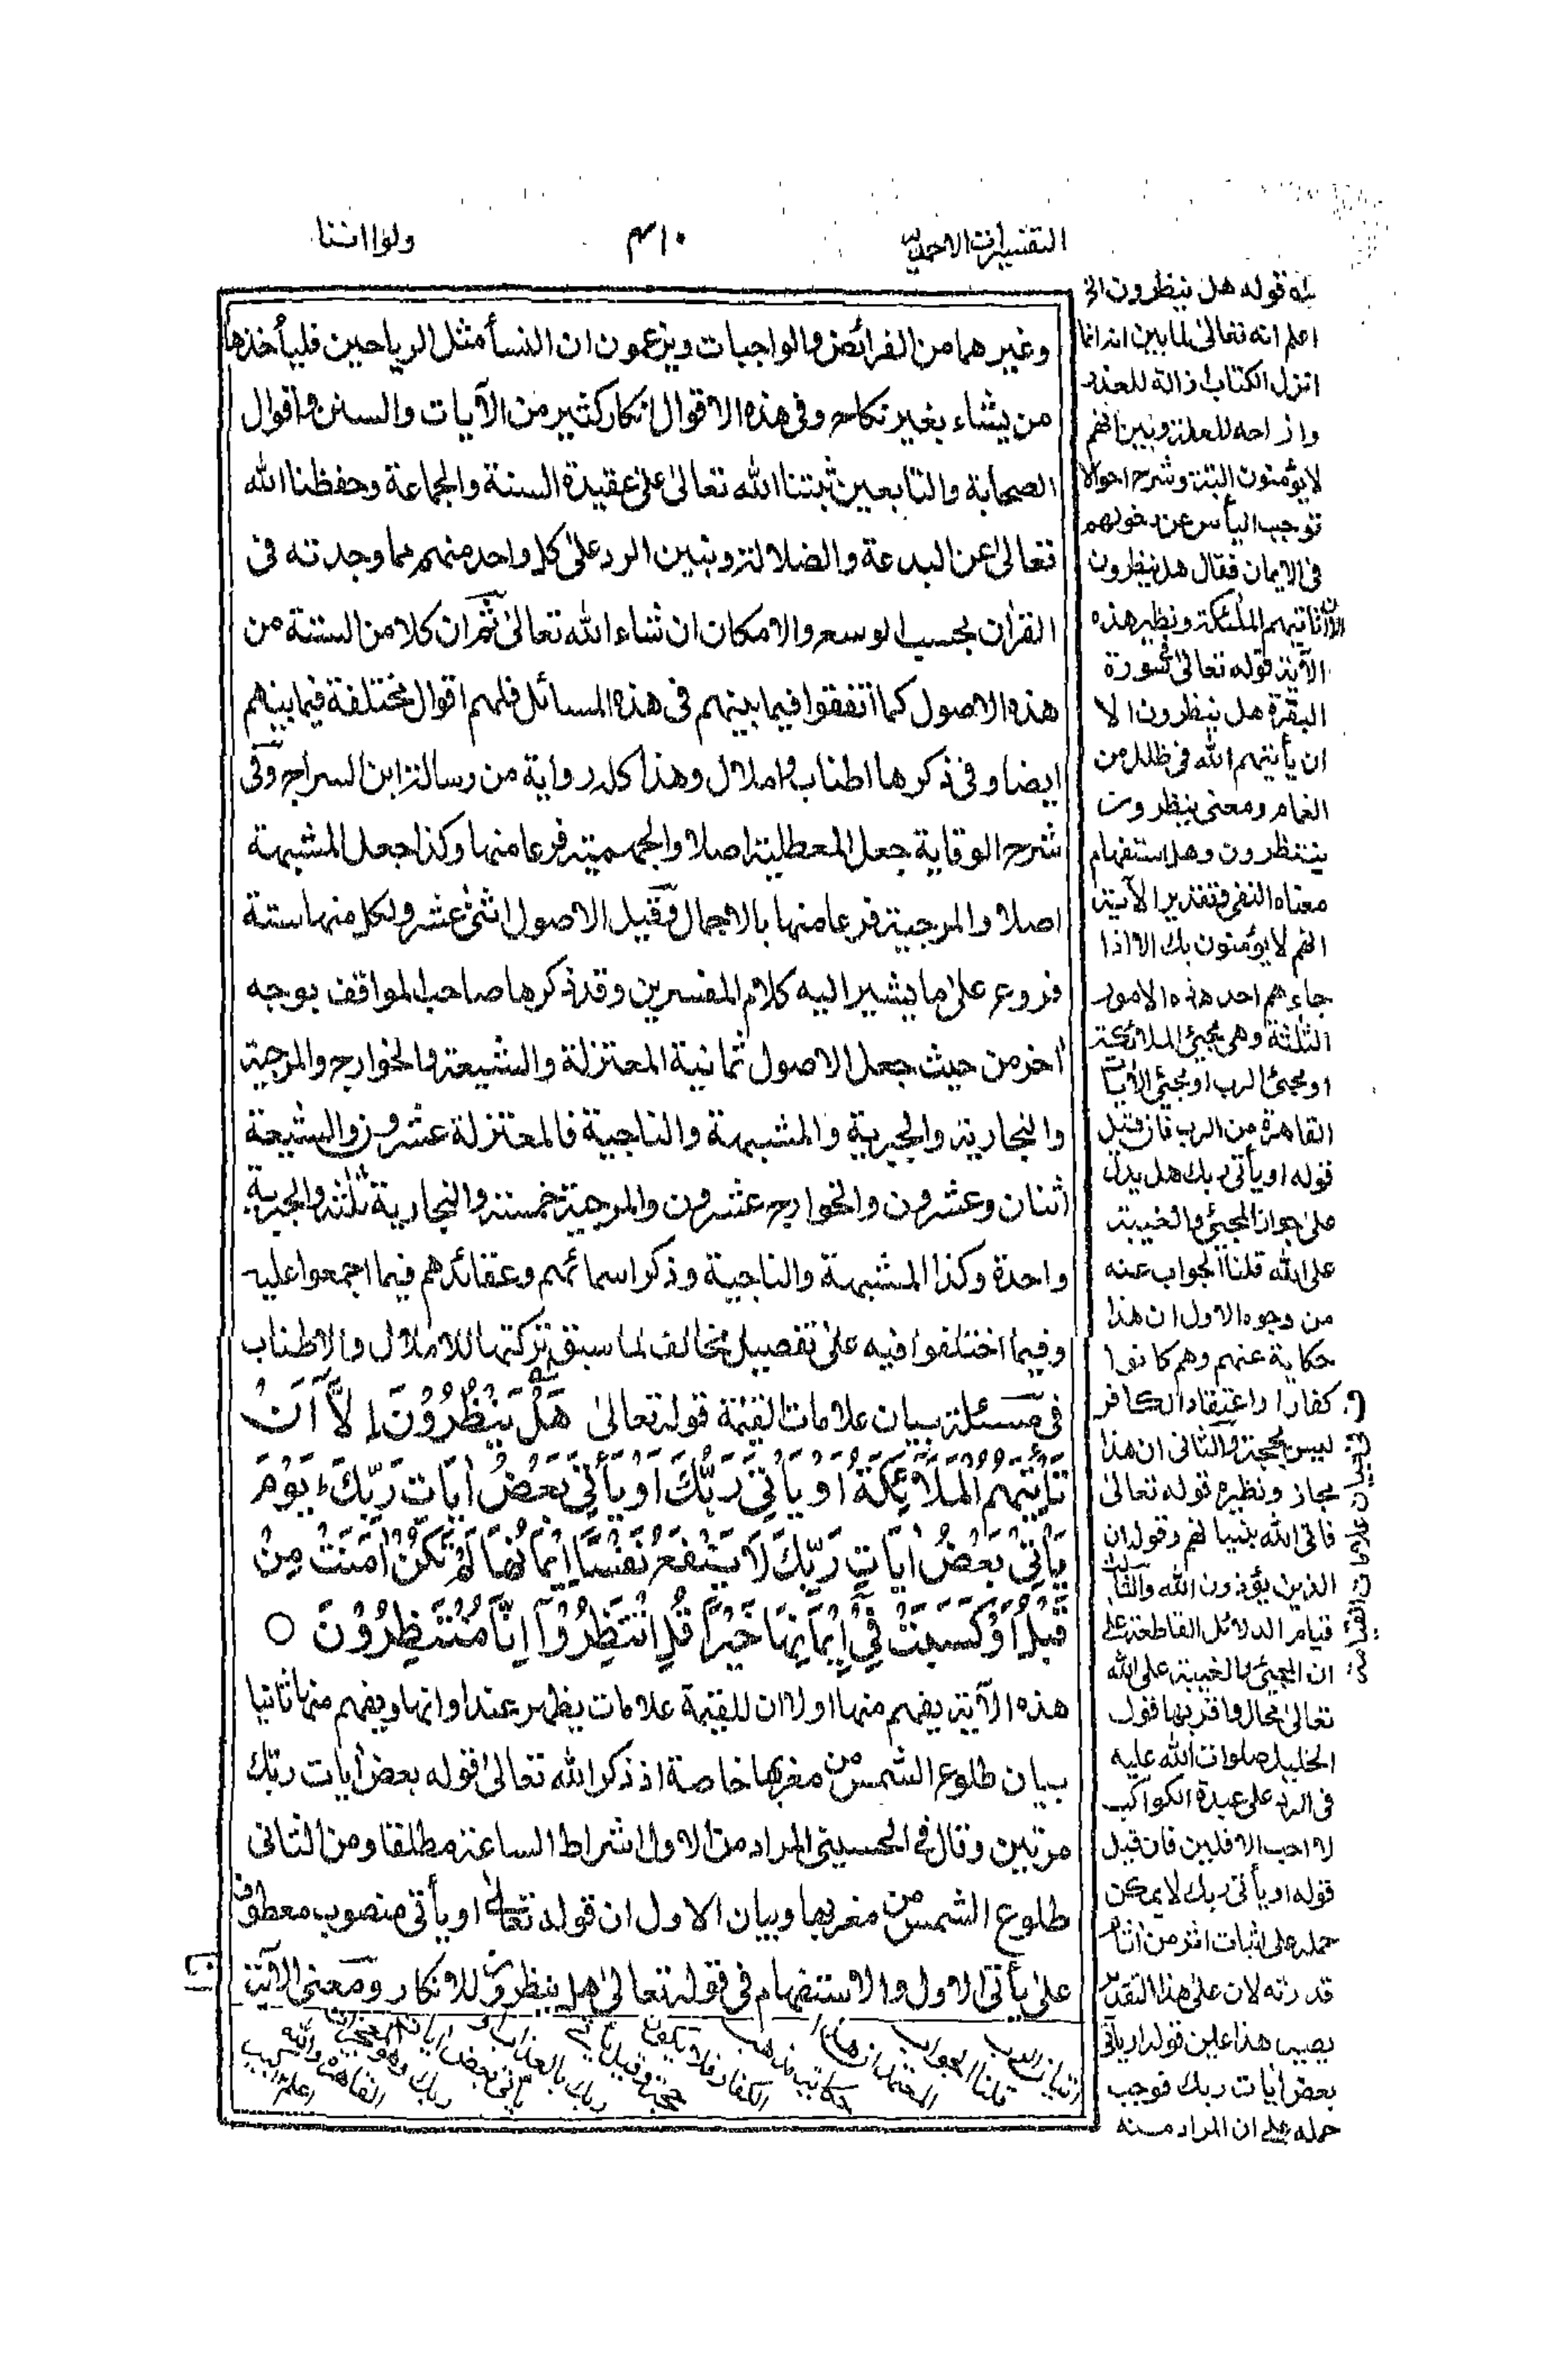 التفسيرات الاحمدية
٤١٠
ولو اننا
وغيرهما من الفرائض والواجبات ويزعمون ان النسأ مثل الرياحين فليأخذها
من يشاء بغير نكاح وفى هذه الاقوال انكار كثير من الآيات والسنن واقوال
الصحابة والتابعين ثبتنا الله تعالىٰ علىٰ عقيدة السنة والجماعة وحفظنا الله
تعالىٰ عن البدعة والضلالة ونبين الرد علىٰ كل واحد منهم مما وجدته فى
القرأن بحسب الوسع والامكان ان شاء الله تعالىٰ ثم ان كلا من الستة من
هذه الاصول كما اتفقوا فيما بينهم فى هذه المسائل فلهم اقوال مختلفة فيما بينهم
ايضا وفى ذكرها اطناب واملال وهذا كله رواية من رسالة ابن السراج وفى
شرح الوقاية جعل المعطلية اصلا والجهمية فرعا منها وكذا جعل المشبهة
اصلا والمرجية فرعا منها بالاجمال وقيل الاصول اثنى عشر ولكل منها ستة
فروع على ما يشير اليه كلام المفسرين وقد ذكرها صاحب المواقف بوجه
أخر من حيث جعل الاصول ثمانية المعتزلة والشيعة والخوارج والمرجية
والنجارية والجبرية والمشبهة والناجية فالمعتزلة عشرون والشيعة
اثنان وعشرون والخوارج عشرون والمرجية خمسة والنجارية ثلثة والجبرية
واحدة وكذا المشبهة والناجية وذكر اسمائهم وعقائدهم فيما اجمعوا عليه
وفيما اختلفوا فيه علىٰ تفصيل مخالف لما سبق تركتها للاملال والاطناب
فى مسئلة بيان علامات القيٰمة قوله تعالىٰ هَلْ يَنْظُرُوْنَ اِلَّآ اَنْ
تَأْتِيَهُمُ الْمَلَآئِكَةُ اَوْ يَأْتِىَ رَبُّكَ اَوْ يَأْتِىَ بَعْضُ اٰيَاتِ رَبِّكَ ؕ يَوْمَ
يَأْتِىْ بَعْضُ اٰيَاتِ رَبِّكَ لَا يَنْفَعُ نَفْسًا اِيْمَانُهَا لَمْ تَكُنْ اٰمَنَتْ مِنْ
قَبْلُ اَوْ كَسَبَتْ فِىْٓ اِيْمَانِهَا خَيْرًا ؕ قُلِ انْتَظِرُوْٓا اِنَّا مُنْتَظِرُوْنَ ○
هذه الآية يفهم منها اولا ان للقيٰمة علامات يظهر عند اوانها ويفهم منها ثانيا
بيان طلوع الشمس من مغربها خاصة اذ ذكر الله تعالىٰ قوله بعض أيات ربّك
مرتين وقال فى الحسينى المراد من الاول اشراط الساعة مطلقا ومن الثانى
طلوع الشمس من مغربها وبيان الاول ان قوله تعالىٰ او يأتى منصوب معطوف
علىٰ يأتى الاول والاستفهام فى قوله تعالىٰ هل ينظرون للانكار ومعنى الآية
قوله هل ينظرون الخ
اعلم انه تعالىٰ لما بين انه انما
انزل الكتاب ازالة للعذر
وازاحة للعلة وبين انهم
لا يؤمنون البتة وشرح احوالا
توجب اليأس عن دخولهم
فى الايمان فقال هل ينظرون
الا ان تاتيهم الملٰئكة ونظير هذه
الآية قوله تعالىٰ فى سورة
البقرة هل ينظرون الا
ان يأتيهم الله فى ظلل من
الغمام ومعنى ينظرون
ينتظرون وهل استفهام
معناه النفى وتقدير الآية
انهم لا يؤمنون بك الا اذا
جاءهم احد هذه الامور
الثلثة وهى مجيئ الملائكة
او مجيئ الرب او مجيئ الأيات
القاهرة من الرب فان قيل
قوله او يأتى ربك هل يدل
على جواز المجيئ والغيبة
على الله قلنا الجواب عنه
من وجوه الاول ان هذا
حكاية عنهم وهم كانوا
كفارا واعتقاد الكافر
ليس بحجة والثانى ان هذا
مجاز ونظيره قوله تعالىٰ
فاتى الله بنيانهم وقوله ان
الذين يؤذون الله والثالث
قيام الدلائل القاطعة على
ان المجيئ والغيبة على الله
تعالىٰ محال واقربها قول
الخليل صلوات الله عليه
فى الرد على عبدة الكواكب
لا احب الافلين فان قيل
قوله او يأتى ربك لا يمكن
حمله على اثبات اثر من أثار
قدرته لان على هذا التقدير
يصير هذا عين قوله او يأتى
بعض أيات ربك فوجب
حمله على ان المراد منه
فى بيان علامات القيامة